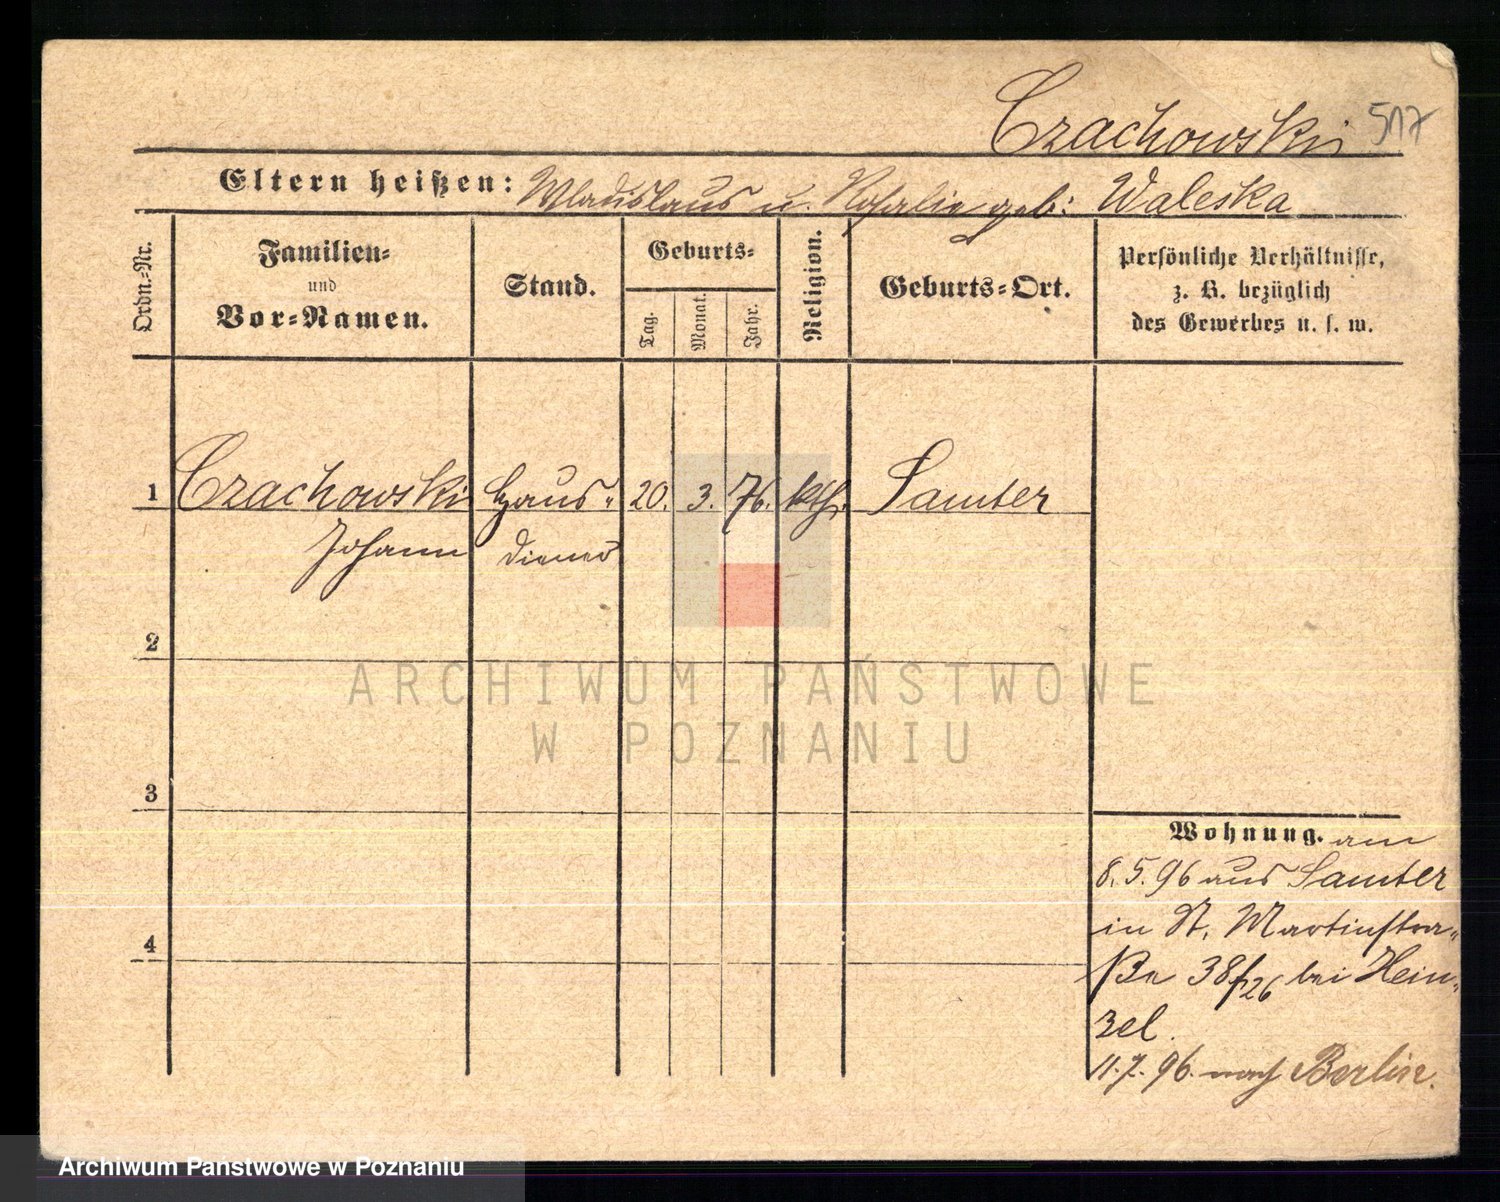 Czachowski 517
Eltern heißen: Wladislaus u. Rosalie geb: Waleska
Ordn.-Nr.
Familien-
und
Vor-Namen.
Stand.
Geburts-
Tag.
Monat.
Jahr.
Religion.
Geburts-Ort.
Persönliche Verhältnisse,
z. B. bezüglich
des Gewerbes u. s. w.
1 Czachowski Haus- 20. 3. 76. kth. Samter
Johann diener
2
ARCHIWUM PAŃSTWOWE
W POZNANIU
3
Wohnung. am
8.5.96 aus Samter
in St. Martinstra-
4
ße 38/26 bei Hein-
zel.
11.7.96. nach Berlin.
Archiwum Państwowe w Poznaniu